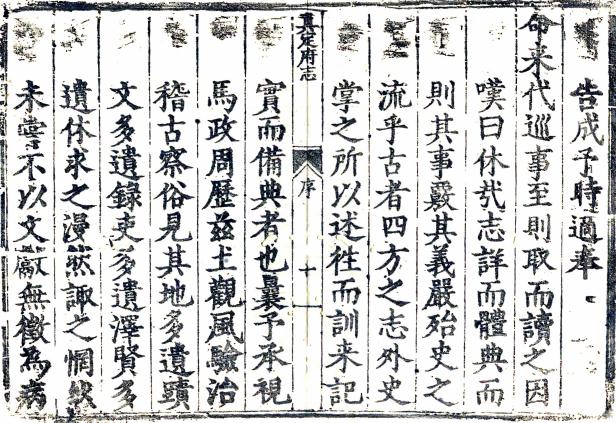 告成予時適奉
命来代巡事至則取而讀之因
嘆曰休哉志詳而體典而
則其事覈其義嚴殆史之
流乎古者四方之志外史
掌之所以述徃而訓来記
真定府志 序 十
實而備典者也曩予承視
馬政周歷兹土觀風驗治
稽古察俗見其地多遺蹟
文多遺録吏多遺澤賢多
遺休求之漫然諏之惘然
未甞不以文獻無徵為病